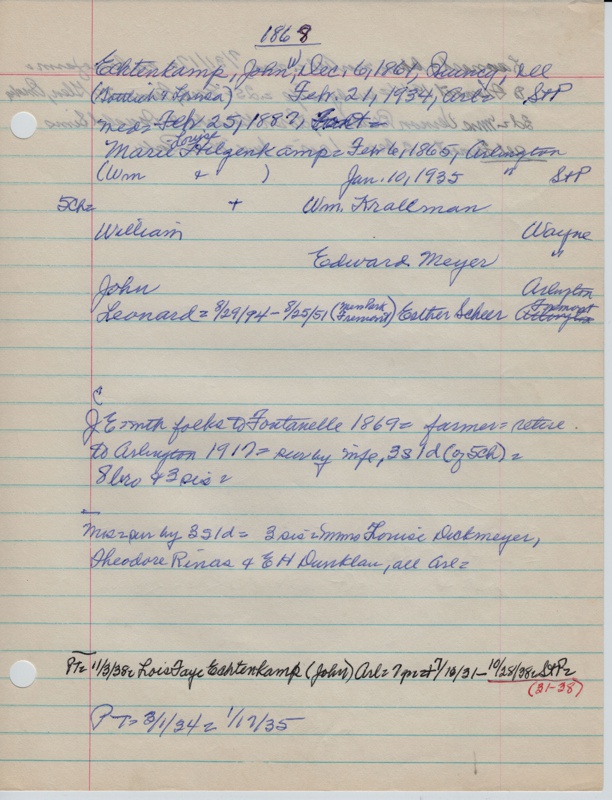 1868
Echtenkamp, John, (1) Dec. 6, 1861, Quincy, Ill
(Gottlieb & Louisa) Feb. 21, 1934, Arl= StP
med= Feb 25, 1887, Font=
Marie Louise Hilgenkamp= Feb 6, 1865, Arlington
(Wm & ) Jan. 10, 1935 " StP
5Ch= + Wm. Krallman
William Wayne
Edward Meyer "
John Arlington
Leonard= 8/29/94 - 8/25/51 (Mem Park Fremont) Esther Scheer Fremont Arlington
JE=with folks to Fontanelle 1869= farmer= retire
to Arlington 1917= sur by wife, 3s 1d (of 5ch)=
8 bro & 3 sis=
Mrs=sur by 3s 1d= 3 sis=Mmes Louise Dickmeyer,
Theodore Rinas & E H Dunklau, all Arl=
PT= 11/3/38= Lois Faye Echtenkamp (John) Arl= 7 /16/31 - 10/28/38= StP=
(31-38)
PT= 3/1/34= 1/17/35